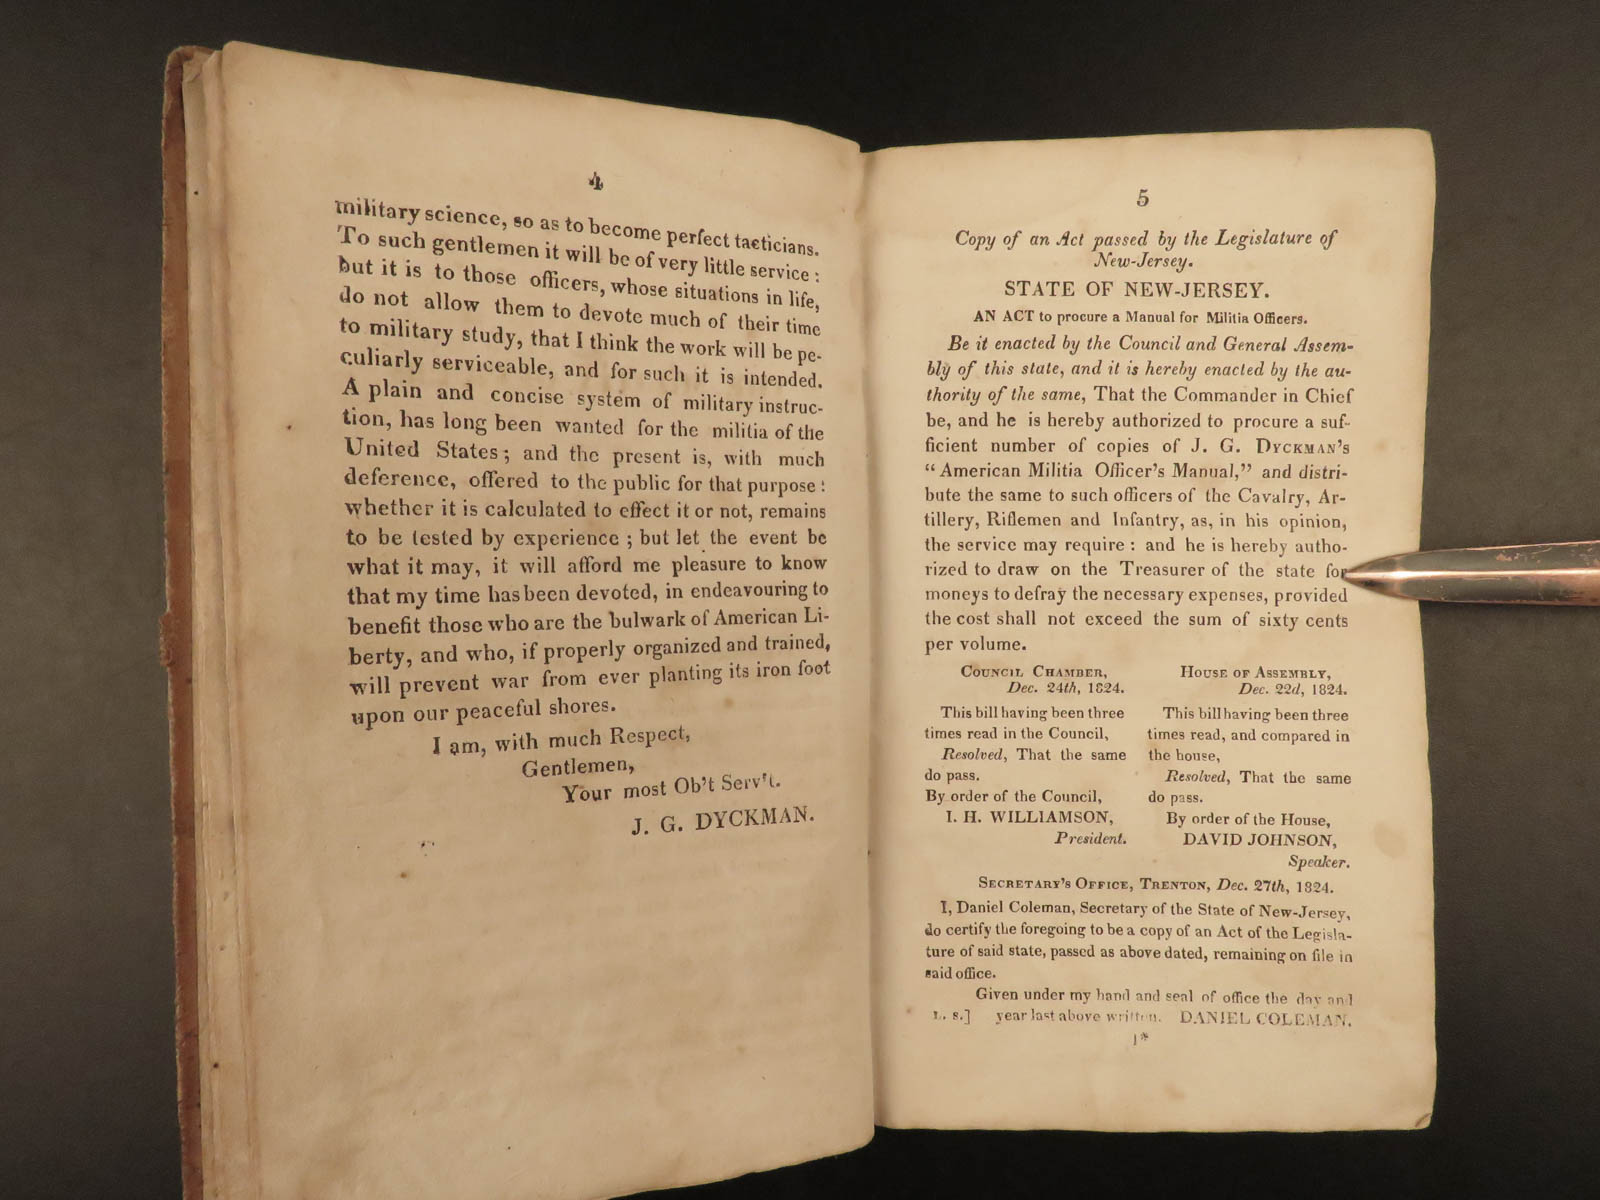 4
military science, so as to become perfect tacticians.
To such gentlemen it will be of very little service :
but it is to those officers, whose situations in life,
do not allow them to devote much of their time
to military study, that I think the work will be pe-
culiarly serviceable, and for such it is intended.
A plain and concise system of military instruc-
tion, has long been wanted for the militia of the
United States ; and the present is, with much
deference, offered to the public for that purpose :
whether it is calculated to effect it or not, remains
to be tested by experience ; but let the event be
what it may, it will afford me pleasure to know
that my time has been devoted, in endeavouring to
benefit those who are the bulwark of American Li-
berty, and who, if properly organized and trained,
will prevent war from ever planting its iron foot
upon our peaceful shores.
I am, with much Respect,
Gentlemen,
Your most Ob't Serv't.
J. G. DYCKMAN.
5
Copy of an Act passed by the Legislature of
New-Jersey.
STATE OF NEW-JERSEY.
AN ACT to procure a Manual for Militia Officers.
Be it enacted by the Council and General Assem-
bly of this state, and it is hereby enacted by the au-
thority of the same, That the Commander in Chief
be, and he is hereby authorized to procure a suf-
ficient number of copies of J. G. DYCKMAN'S
"American Militia Officer's Manual," and distri-
bute the same to such officers of the Cavalry, Ar-
tillery, Riflemen and Infantry, as, in his opinion,
the service may require : and he is hereby autho-
rized to draw on the Treasurer of the state for
moneys to defray the necessary expenses, provided
the cost shall not exceed the sum of sixty cents
per volume.
COUNCIL CHAMBER,
Dec. 24th, 1824.
This bill having been three
times read in the Council,
Resolved, That the same
do pass.
By order of the Council,
I. H. WILLIAMSON,
President.
HOUSE OF ASSEMBLY,
Dec. 22d, 1824.
This bill having been three
times read, and compared in
the house,
Resolved, That the same
do pass.
By order of the House,
DAVID JOHNSON,
Speaker.
SECRETARY'S OFFICE, TRENTON, Dec. 27th, 1824.
I, Daniel Coleman, Secretary of the State of New-Jersey,
do certify the foregoing to be a copy of an Act of the Legisla-
ture of said state, passed as above dated, remaining on file in
said office.
Given under my hand and seal of office the day and
L. S.] year last above written. DANIEL COLEMAN.
1*